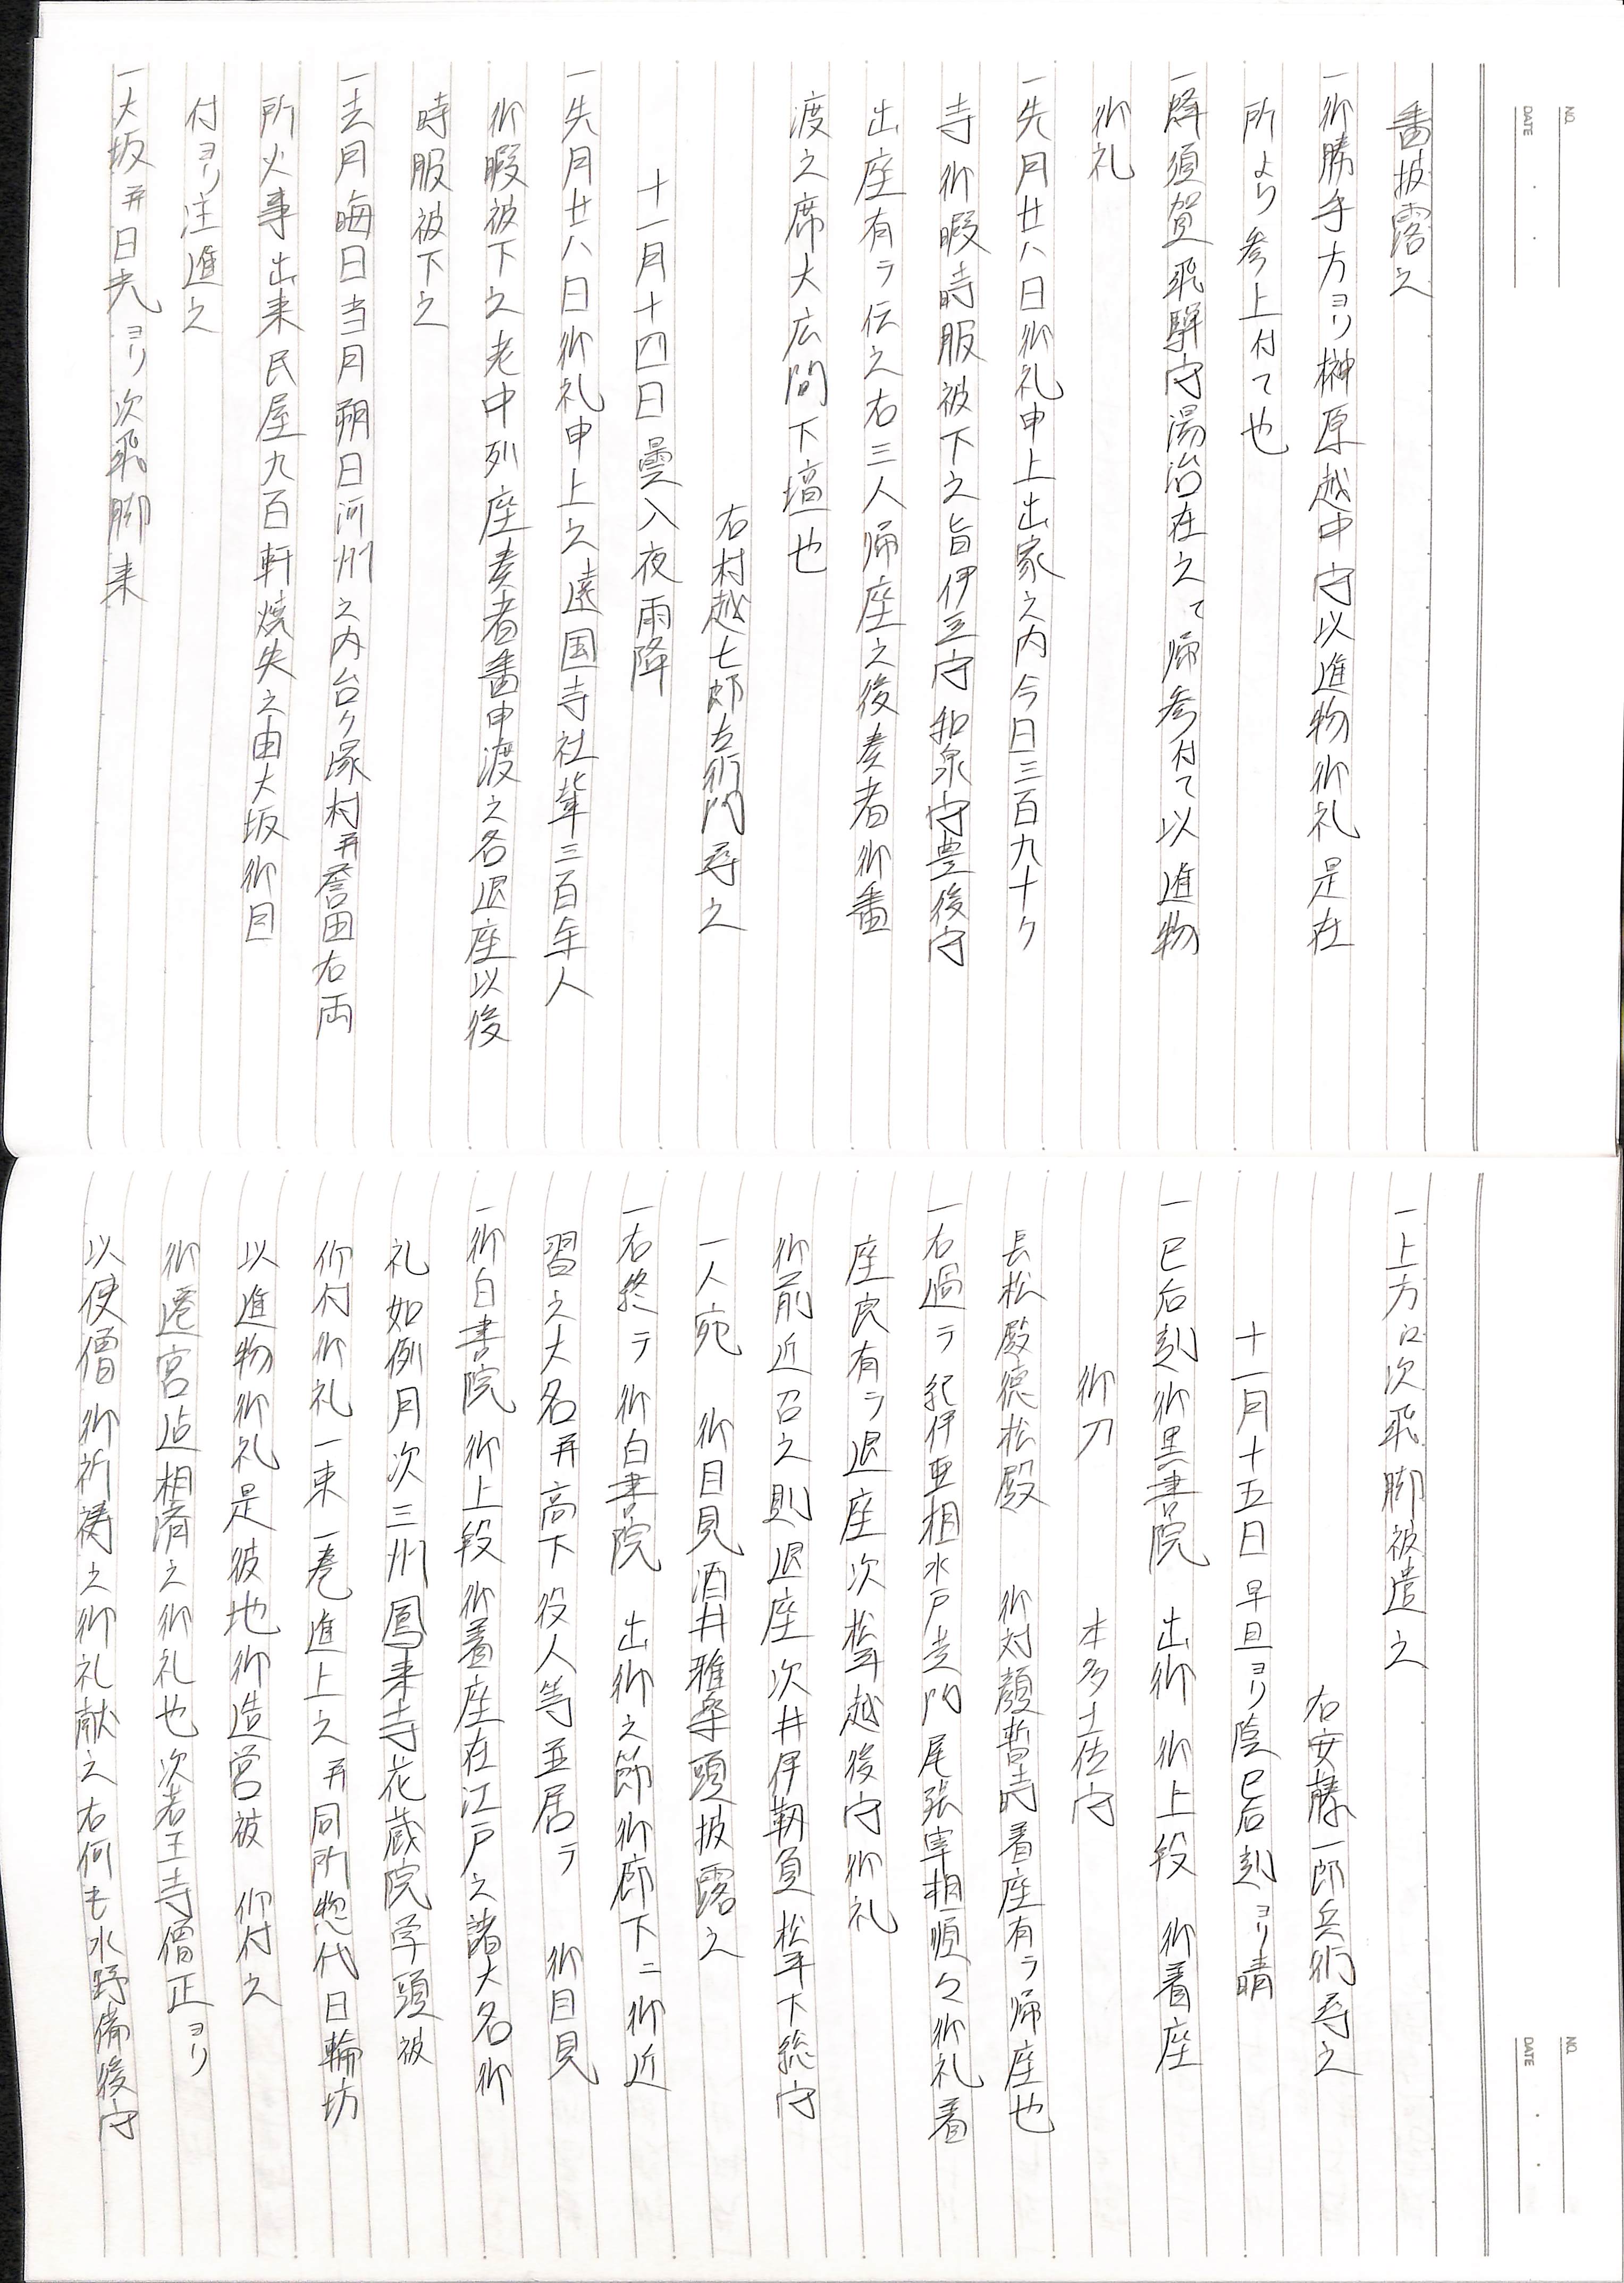 番披露之
一御勝手方ヨリ榊原越中守以進物御礼是在
所より参上付て也
一蜂須賀飛騨守湯治在之て帰参付て以進物
御礼
一先月廿八日御礼申上出家之内今日三百九十ケ
寺御暇時服被下之旨伊豆守和泉守豊後守
出座有テ伝之右三人帰座之後奏者御番
渡之席大広間下壇也
右村越七郎左衛門尋之
十一月十四日曇入夜雨降
一先月廿八日御礼申上之遠国寺社輩三百余人
御暇被下之老中列座奏者番申渡之各退座以後
時服被下之
一去月晦日当月朔日河州之内台ケ塚村并誉田右両
所火事出来民屋九百軒焼失之由大坂御目
付ヨリ注進之
一大坂并日光ヨリ次飛脚来
一上方江次飛脚被遣之
右安藤一郎兵衛尋之
十一月十五日早旦ヨリ陰巳后刻ヨリ晴
一巳后刻御黒書院 出御 御上段 御着座
御刀 本多土佐守
長松殿徳松殿 御対顔暫時着座有テ帰座也
一右過テ紀伊亜相水戸黄門尾張宰相順々御礼着
座良有テ退座次松平越後守御礼
御前近召之則退座次井伊靱負松平下総守
一人宛 御目見酒井雅楽頭披露之
一右終テ御白書院 出御之節御廊下ニ御近
習之大名并高下役人等並居テ 御目見
一御白書院御上段御着座在江戸之諸大名御
礼如例月次三州鳳来寺花蔵院学頭被
仰付御礼一束一巻進上之并同所惣代日輪坊
以進物御礼是彼地御造営被 仰付之
御遷宮迄相済之御礼也次若王寺僧正ヨリ
以使僧御祈祷之御礼献之右何も水野備後守